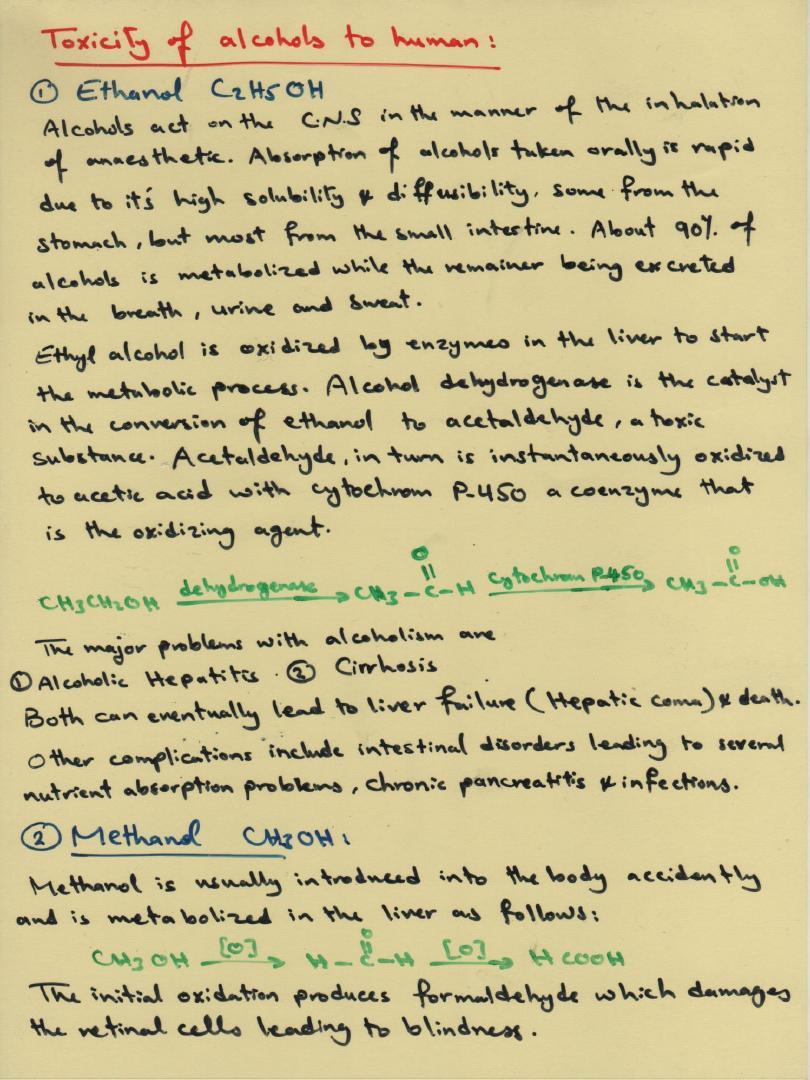 Toxicity of alcohols to human:
① Ethanol C2H5OH
Alcohols act on the C.N.S in the manner of the inhalation
of anaesthetic. Absorption of alcohols taken orally is rapid
due to it's high solubility & diffusibility, some from the
stomach, but most from the small intestine. About 90% of
alcohols is metabolized while the remainer being excreted
in the breath, urine and sweat.
Ethyl alcohol is oxidized by enzymes in the liver to start
the metabolic process. Alcohol dehydrogenase is the catalyst
in the conversion of ethanol to acetaldehyde, a toxic
substance. Acetaldehyde, in turn is instantaneously oxidized
to acetic acid with cytochrom P-450 a coenzyme that
is the oxidizing agent.
O O
CH3CH2OH dehydrogenase → CH3-C-H cytochrom P-450 → CH3-C-OH
The major problems with alcoholism are
① Alcoholic Hepatitis. ② Cirrhosis
Both can eventually lead to liver failure (Hepatic coma) & death.
Other complications include intestinal disorders leading to several
nutrient absorption problems, chronic pancreatitis & infections.
② Methanol CH3OH:
Methanol is usually introduced into the body accidently
and is metabolized in the liver as follows:
O
CH3OH [O] → H-C-H [O] → HCOOH
The initial oxidation produces formaldehyde which damages
the retinal cells leading to blindness.